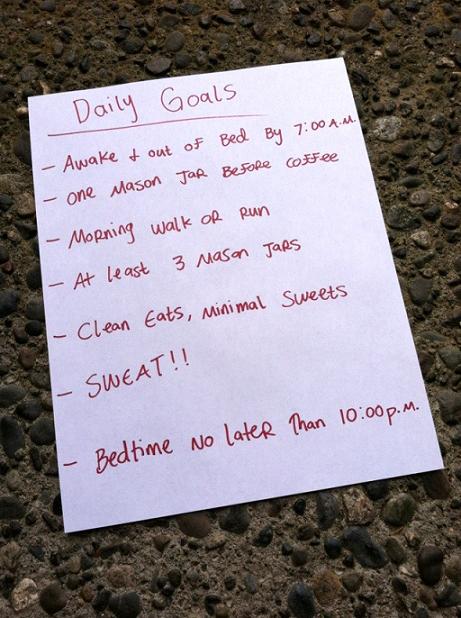 Daily Goals
- Awake & out of Bed By 7:00 A.M.
- One Mason Jar Before Coffee
- Morning Walk or Run
- At least 3 Mason Jars
- Clean Eats, Minimal Sweets
- SWEAT!!
- Bedtime No Later Than 10:00 p.m.